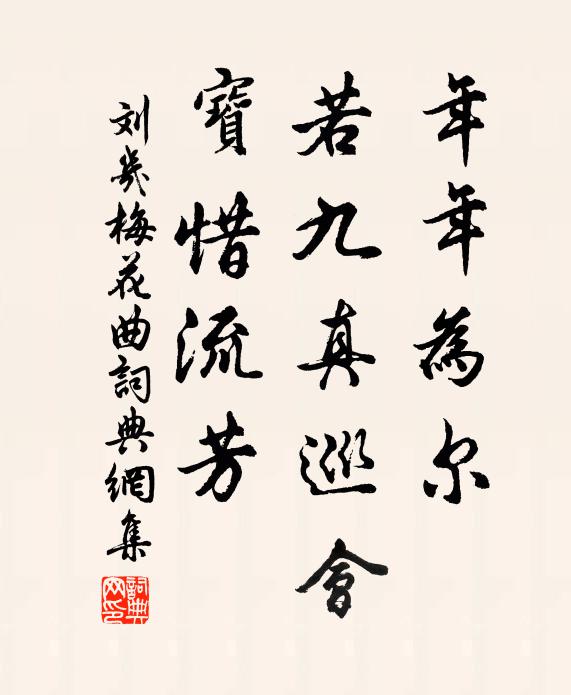 年年為尔
若九真巡會
寶惜流芳
刘幾梅花曲詞典網集
詞典網印